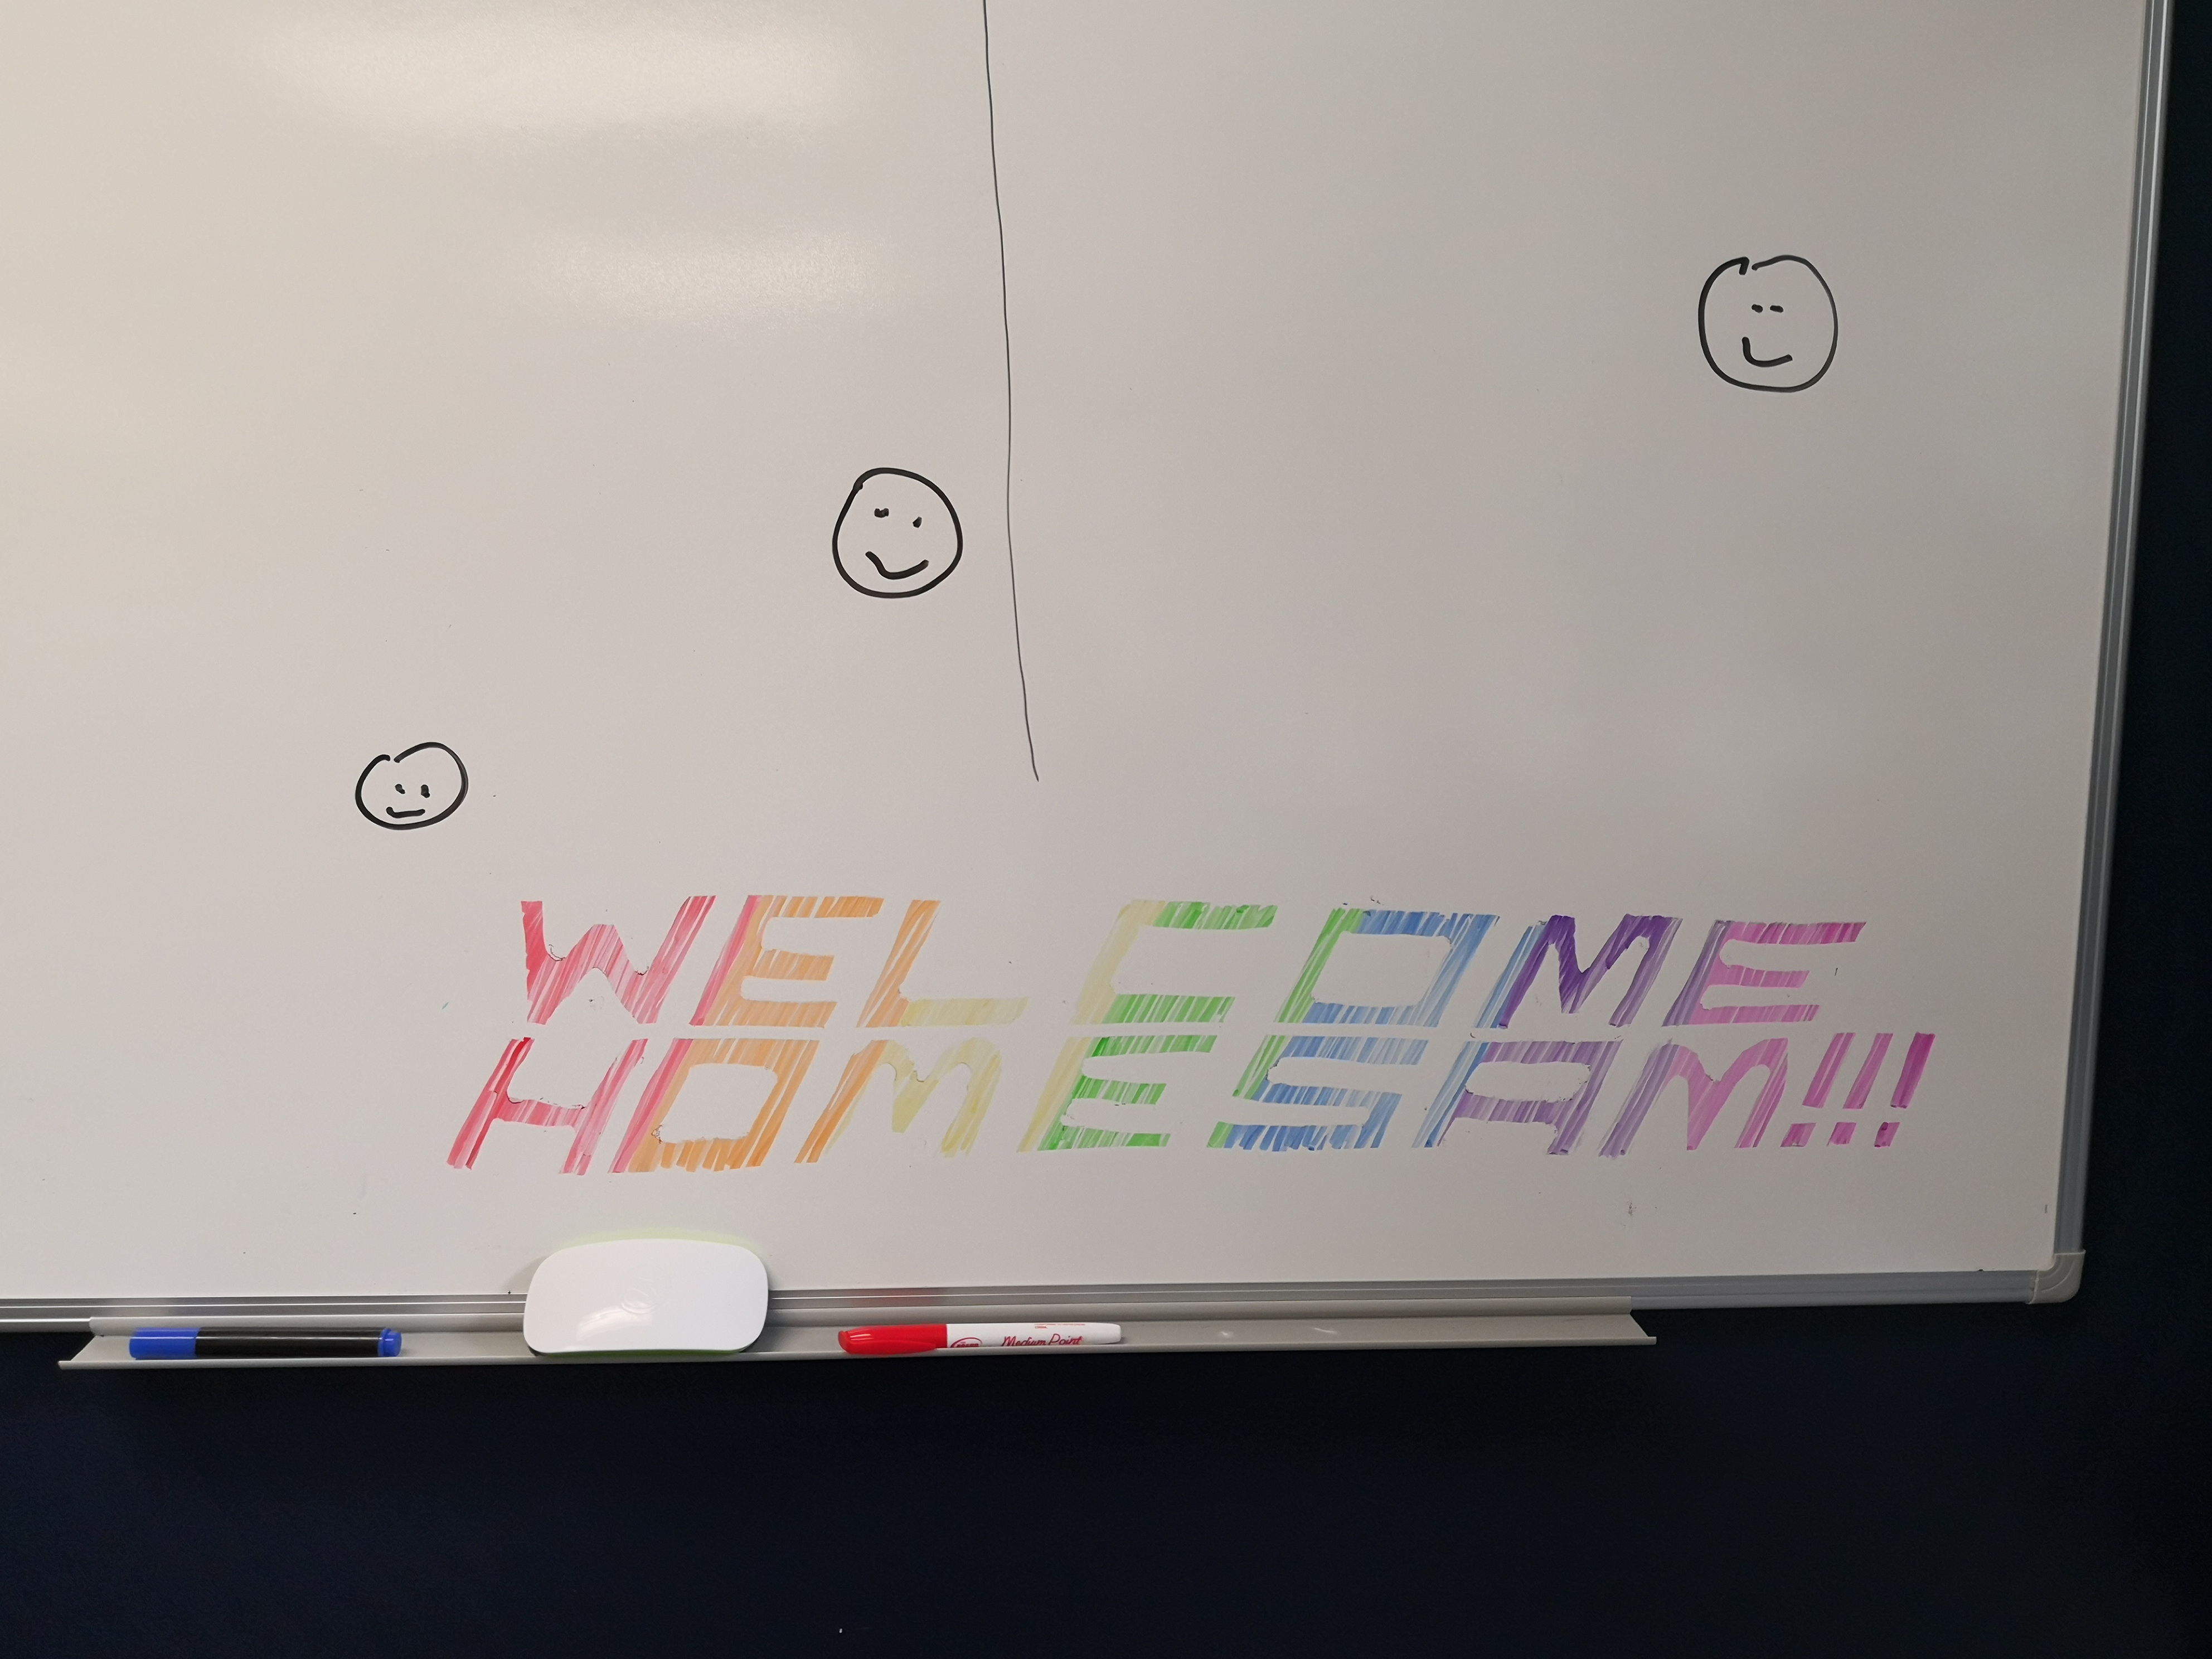 WELCOME
HOME SAM!!!
Medium Point